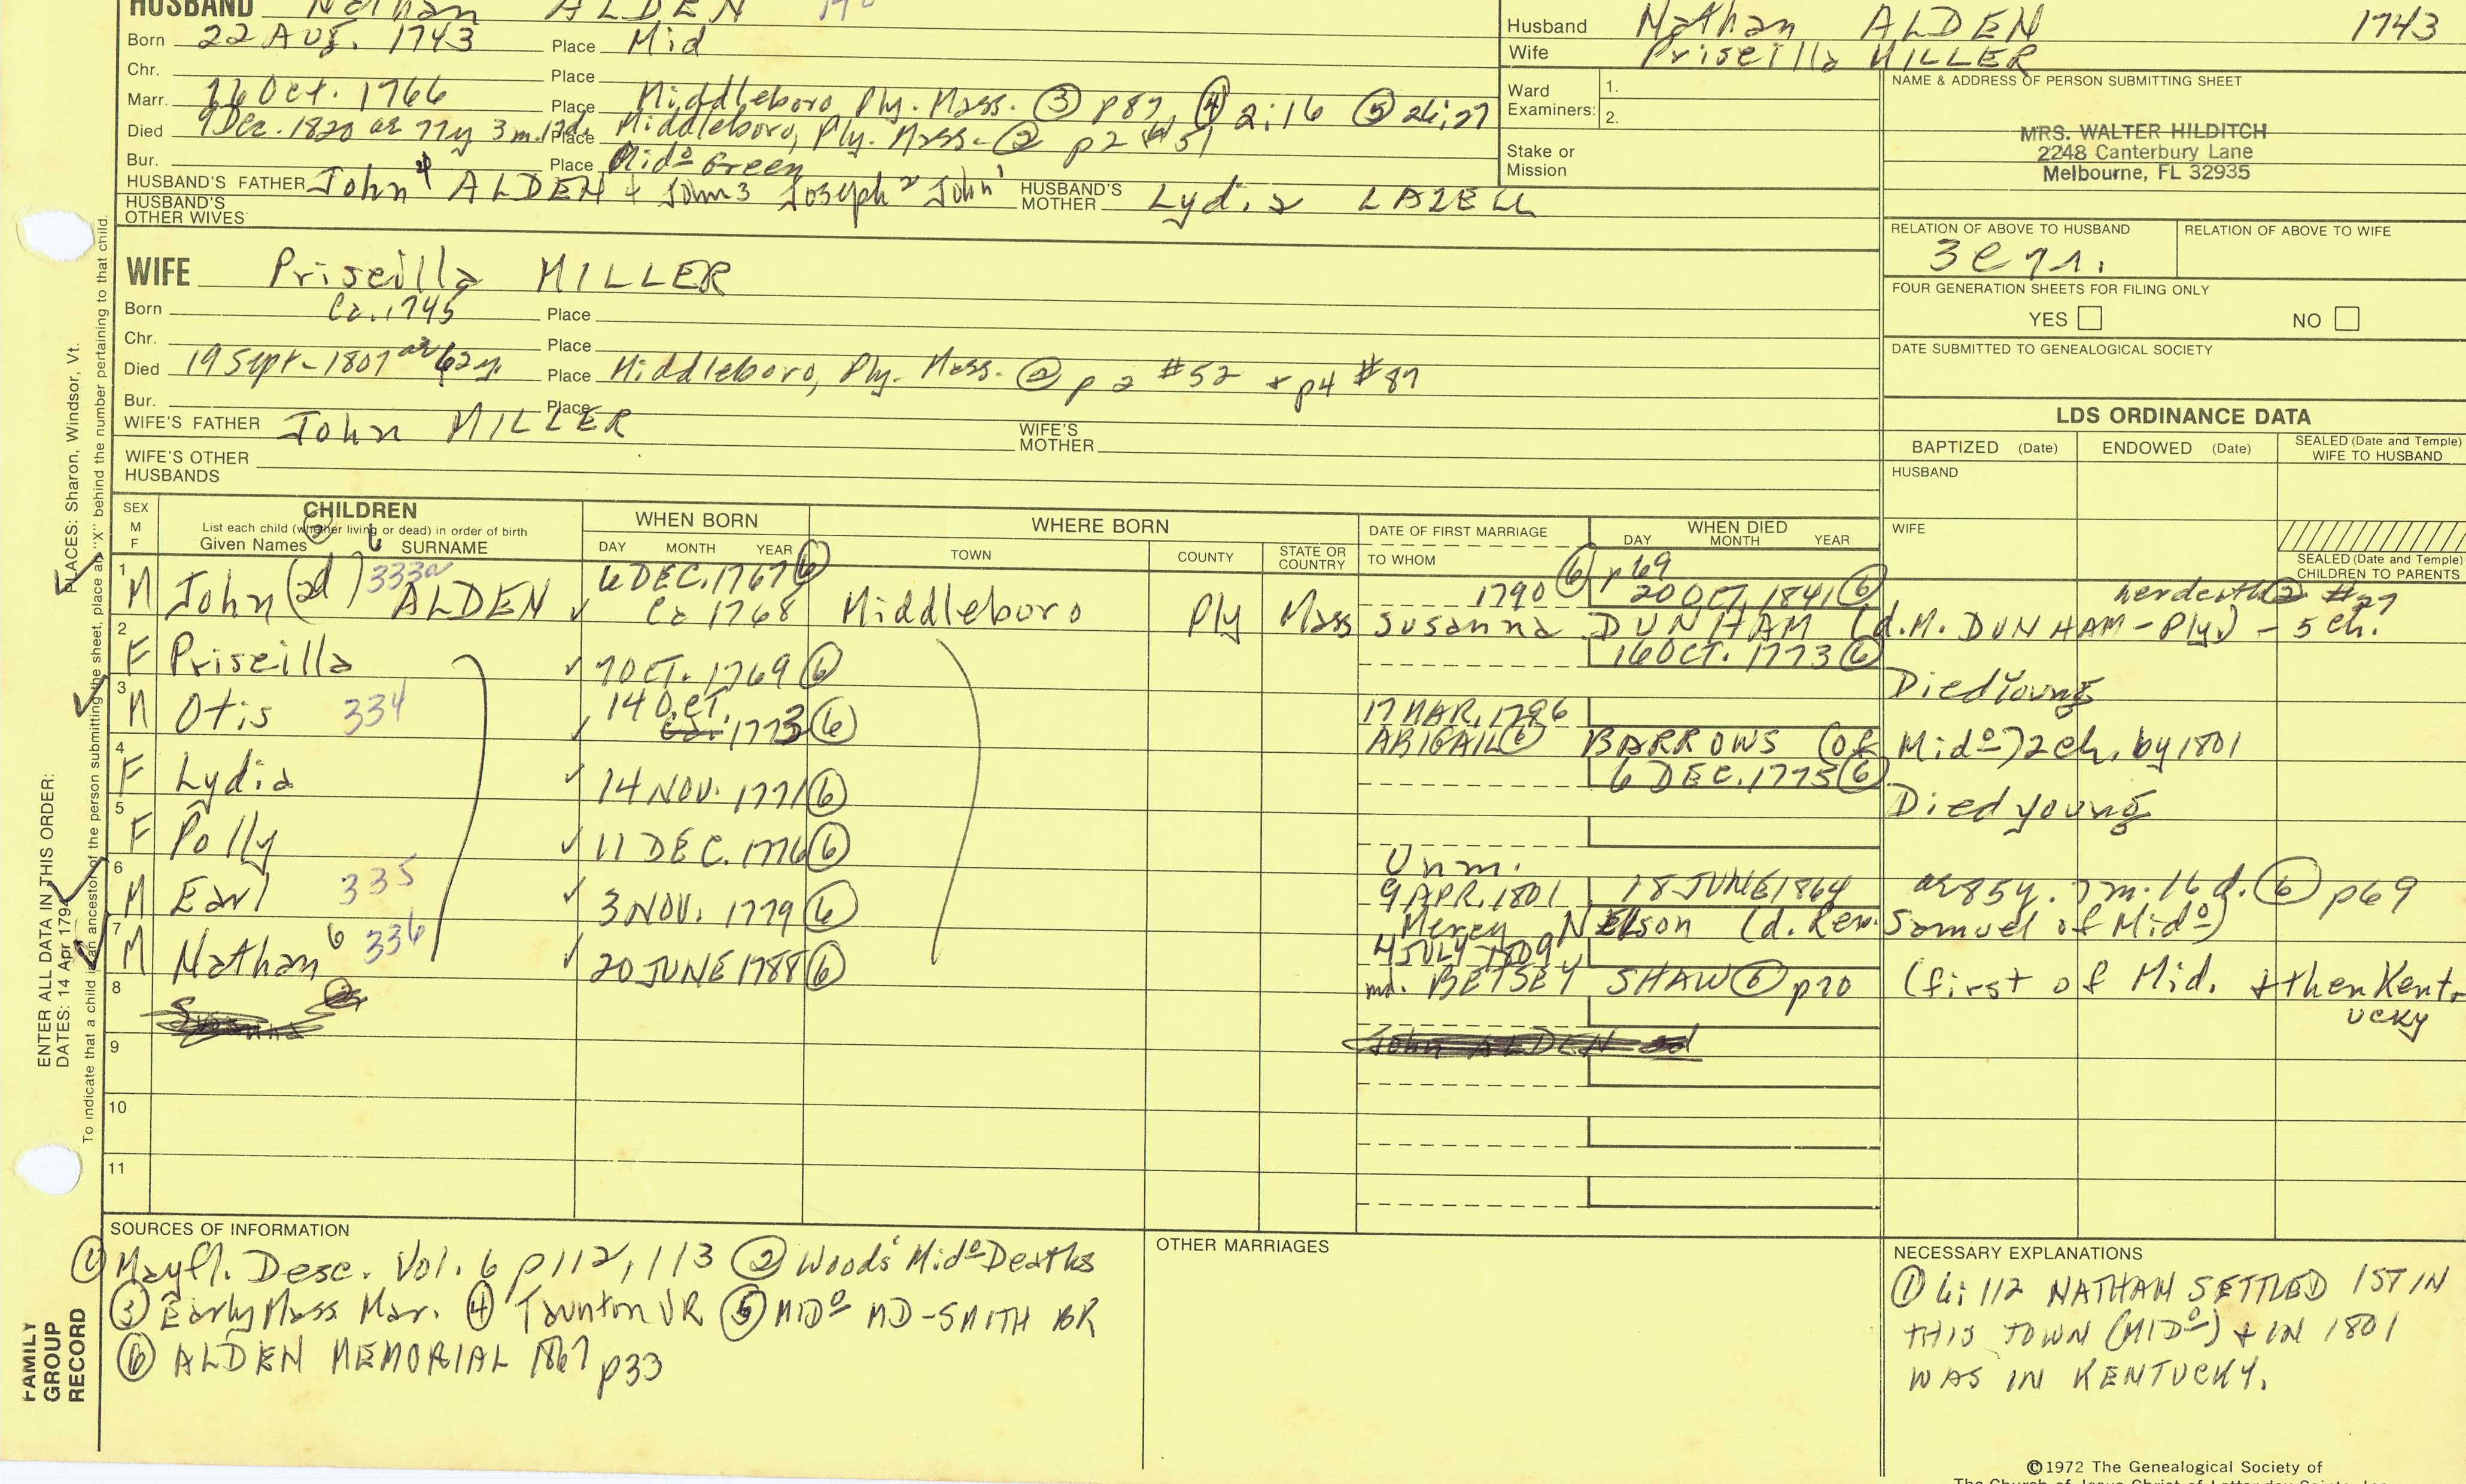 HUSBAND Nathan ALDEN
Born 22 AUG. 1743 Place Mid
Chr. Place
Marr. Oct. 1766 Place Middleboro, Ply. Mass. ③ p87, ④ 2:16 ⑤ 26:27
Died 9 Dec. 1820 ae 77y 3m. 17d. Place Middleboro, Ply. Mass. ② p2 #51
Bur. Place Mid⁰ Green
HUSBAND'S FATHER John⁴ ALDEN + John3 Joseph² John¹ HUSBAND'S MOTHER Lydia LAZELL
HUSBAND'S OTHER WIVES
Husband Nathan ALDEN 1743
Wife Priscilla MILLER
Ward Examiners: 1.
2.
Stake or Mission
NAME & ADDRESS OF PERSON SUBMITTING SHEET
MRS. WALTER HILDITCH
2248 Canterbury Lane
Melbourne, FL 32935
RELATION OF ABOVE TO HUSBAND RELATION OF ABOVE TO WIFE
FOUR GENERATION SHEETS FOR FILING ONLY
YES NO
DATE SUBMITTED TO GENEALOGICAL SOCIETY
WIFE Priscilla MILLER
Born Ca. 1745 Place
Chr. Place
Died 19 Sept. 1807 ae 62y. Place Middleboro, Ply. Mass. ② p 2 #52 + p4 #87
Bur. Place
WIFE'S FATHER John MILLER WIFE'S MOTHER
WIFE'S OTHER HUSBANDS
LDS ORDINANCE DATA
BAPTIZED (Date) ENDOWED (Date) SEALED (Date and Temple) WIFE TO HUSBAND
HUSBAND
WIFE
SEALED (Date and Temple) CHILDREN TO PARENTS
SEX M F
CHILDREN
List each child (whether living or dead) in order of birth
Given Names SURNAME
WHEN BORN
DAY MONTH YEAR
WHERE BORN
TOWN COUNTY STATE OR COUNTRY
DATE OF FIRST MARRIAGE
TO WHOM
WHEN DIED
DAY MONTH YEAR
1 M John (2d) 333a ALDEN 6 DEC. 1767 ⑥ Ca 1768 Middleboro Ply Mass 1790 ⑥ p69 20 OCT. 1841 ⑥
Susanna DUNHAM (d. M. DUNHAM - Ply) - 5 ch. her death ② #27
2 F Priscilla 7 OCT. 1769 ⑥ 16 OCT. 1773 ⑥ Died Young
3 M Otis 334 14 OCT. 1773 ⑥ 17 MAR. 1796
ABIGAIL ⑥ BARROWS (of Mid⁰) 2 ch. by 1801
4 F Lydia 14 NOV. 1771 ⑥ 6 DEC. 1775 ⑥ Died young
5 F Polly 11 DEC. 1776 ⑥ Unm.
6 M Earl 335 3 NOV. 1779 ⑥ 9 APR. 1801 18 JUNE 1864 ae 85y. 7m. 16d. ⑥ p69
Mercy NELSON (d. Rev. Samuel of Mid⁰)
7 M Nathan⁶ 336 20 JUNE 1788 ⑥ 4 JULY 1809
md. BETSEY SHAW ⑥ p70 (first of Mid. + then Kentucky
8
9
10
11
SOURCES OF INFORMATION
① Mayfl. Desc. Vol. 6 p112, 113 ② Woods' Mid⁰ Deaths
③ Early Mass Mar. ④ Taunton VR ⑤ MID⁰ MD-SMITH BR
⑥ ALDEN MEMORIAL 1867 p33
OTHER MARRIAGES
NECESSARY EXPLANATIONS
① 6:112 NATHAN SETTLED 1ST IN
THIS TOWN (MID⁰) + IN 1801
WAS IN KENTUCKY.
ENTER ALL DATA IN THIS ORDER:
DATES: 14 Apr 1794
PLACES: Sharon, Windsor, Vt.
To indicate that a child is an ancestor of the person submitting the sheet, place an "X" behind the number pertaining to that child.
FAMILY GROUP RECORD
©1972 The Genealogical Society of